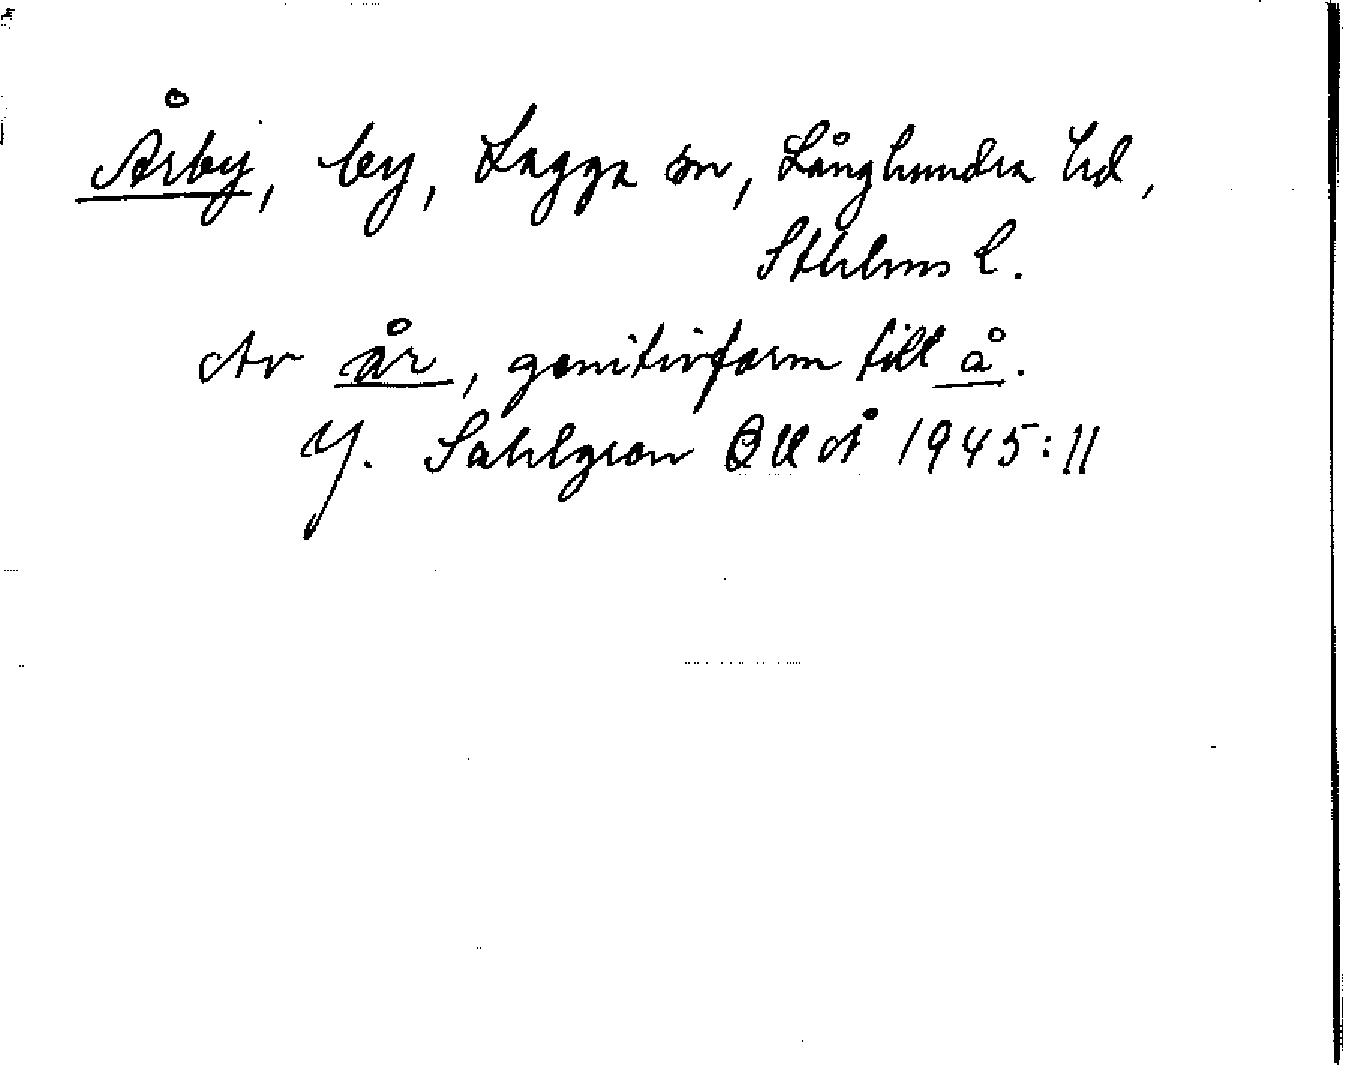 Årby, by, Lagga sn, Långhundra hd,
Sthlms l.
Av år, genitivform till å.
J. Sahlgren OUÅ 1945:11